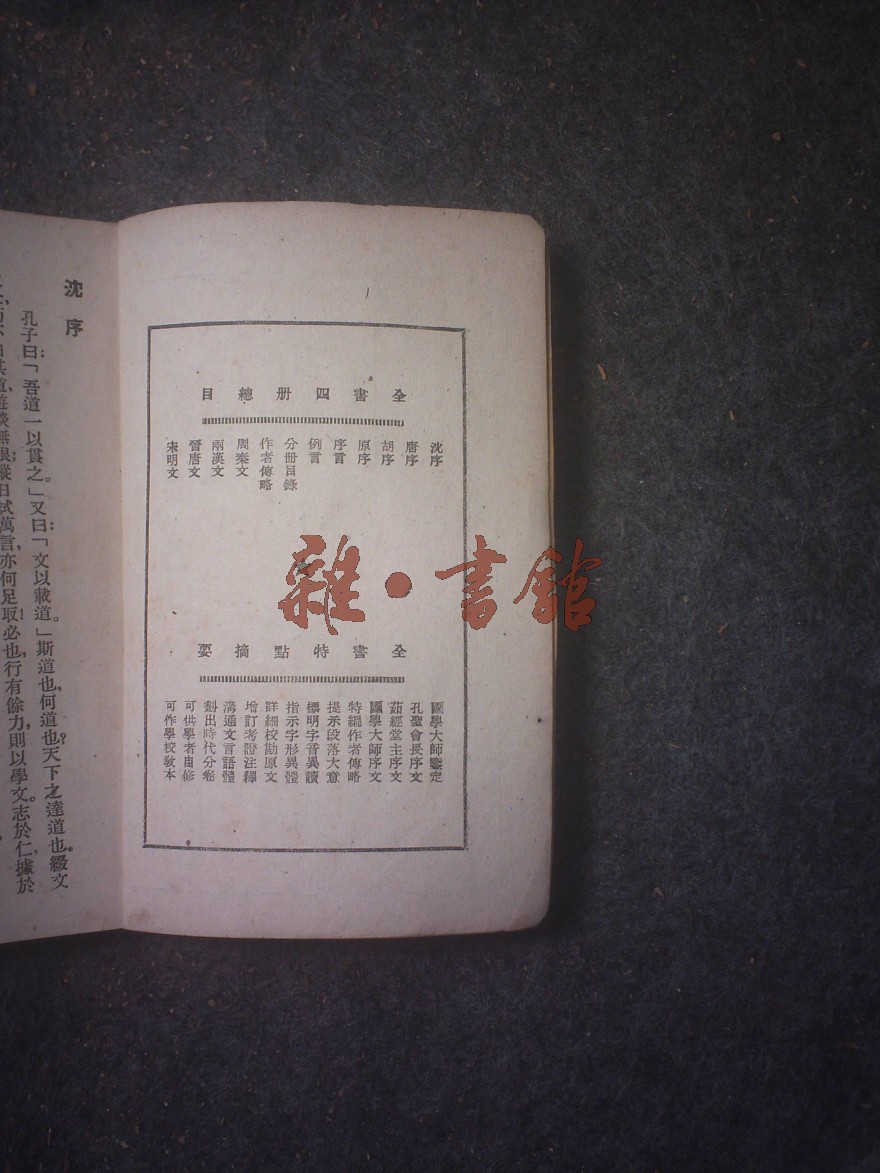 全書四册總目
沈序
唐序
胡序
原序
序言
例言
分冊目錄
作者傳略
周秦文
兩漢文
晉唐文
宋明文
全書特點摘要
國學大師鑒定
孔聖會長序文
茹經堂主序文
國學大師序文
特編作者傳略
提示段落大意
標明字音異讀
指示字形異體
詳細校勘原文
增訂考證注釋
溝通文言語體
劃出時代分卷
可供學者自修
可作學校教本
雜·書館
沈序
孔子曰:「吾道一以貫之。」又曰:「文以載道。」斯道也,何道也?天下之達道也。綴文
日試萬言,亦何足取!必也,行有餘力,則以學文。志於仁,據於